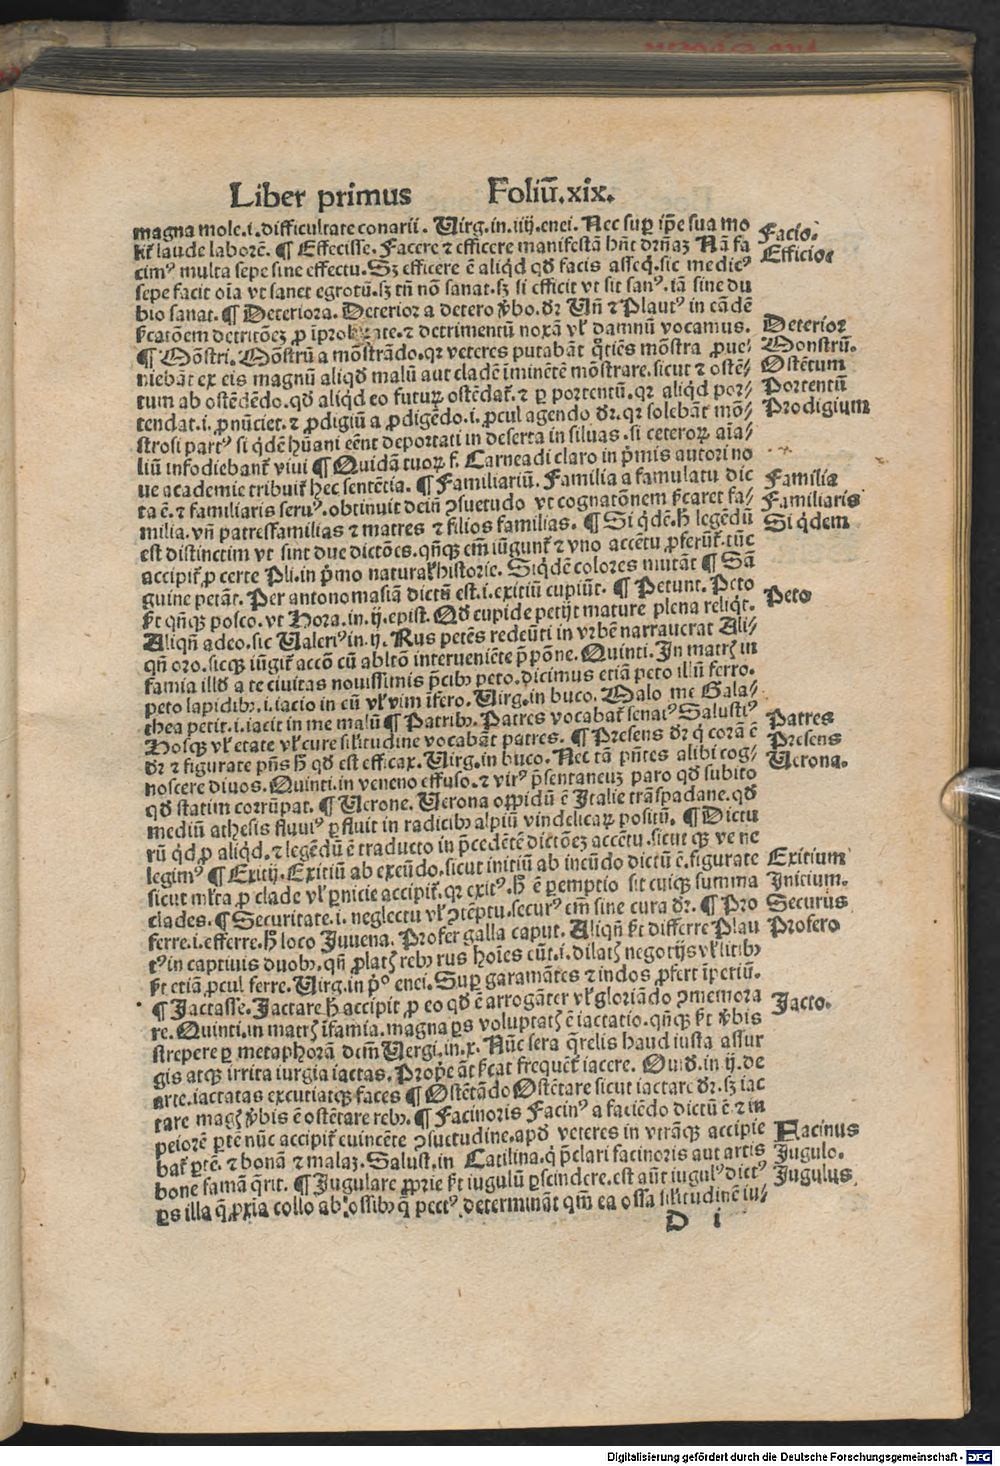 Liber primus Foliū.xix.
magna mole.i.difficultate conarii. Virg.in.iiij.enei. Nec suꝑ ip̄e sua mo
lit᷑ laude laborē. ¶ Effecisse. Facere ⁊ efficere manifestā hn̄t dr̄ñaꝫ Nā fa
cimꝰ multa sepe sine effectu. Sꝫ efficere ē aliqd qđ facis asseq̄. sic medicꝰ
sepe facit oīa vt sanet egrotū.sꝫ tn̄ nō sanat.sꝫ si efficit vt sit sanꝰ.iā sine du
bio sanat. ¶ Deteriora. Deterior a detero v̄bo.dr̄ Vn̄ ⁊ Plautꝰ in eādē
⁊ detrimentū noxā vl᷑ damnū vocamus.
¶ Mōstri. Mōstrū a mōstrādo.qꝛ veteres putabāt qͦtiēs mōstra ꝓue⸗
niebāt ex eis magnū aliqđ malū aut cladē īminētē mōstrare.sicut ⁊ ostē⸗
tum ab ostēdēdo.qđ aliqđ eo futuꝝ ostēdat᷑.⁊ ꝑ portentū.qꝛ aliqd por⸗
tendat.i.ꝓnūciet.⁊ ꝓdigiū a ꝓdigēdo.i.ꝓcul agendo dr̄.qꝛ solebāt mō⸗
strosi partꝰ si qͥdē hūani eēnt deportati in deserta in siluas.si ceteroꝝ aīa⸗
liū infodiebant᷑ viui ¶ Quidā tuoꝝ f. Carneadi claro in p̄mis autori no
ue academie tribuit᷑ hec sentētia. ¶ Familiariū. Familia a famulatu dic
ta ē.⁊ familiaris seruꝰ.obtinuit dein̄ ꝯsuetudo vt cognatōnem p̄caret fa⸗
milia.vn̄ patresfamilias ⁊ matres ⁊ filios familias. ¶ Si qͥdē.ħ legēdū
est distinctim vt sint due dictōes.qn̄qꝫ em̄ iūgunt᷑ ⁊ vno accētu ꝓferūt᷑.tūc
accipit᷑ ꝓ certe Pli.in p̄mo natural᷑historie. Siqͥdē colores mutāt ¶ Sā
guine petāt. Per antonomasiā dictū est.i.exitiū cupiūt. ¶ Petunt. Peto
qn̄qꝫ posco.vt Hora.in.ij.epist. Qđ cupide petijt mature plena reliqͥt.
Aliqn̄ adeo.sic Valeriꝰ in.ij. Rus petēs redeūti in vrbē narrauerat Ali⸗
qn̄ oro.sicqꝫ iūgit᷑ accō cū abltō interueniēte p̄pōne. Quinti. In
famia illđ a te ciuitas nouissimis p̄cibꝰ peto.dicimus etiā peto illū ferro.
peto lapidibꝰ.i.iacio in eū vl᷑ vim īfero. Virg.in buco. Malo me Gala⸗
thea petit.i.iacit in me malū ¶ Patribꝰ. Patres vocabāt senatꝰ Salustiꝰ
Hosqꝫ vl᷑ etate vl᷑ cure sil᷑itudine vocabāt patres. ¶ Presens dr̄ qͥ corā ē
dr̄ ⁊ figurate pn̄s ħ qđ est efficax. Virg.in buco. Nec tā pn̄tes alibi cog⸗
noscere diuos. Quinti.in veneno effuso. qđ subito
qđ statim corrūpat. ¶ Verone. Verona oppidū ē Italie trāspadane.qđ
mediū athesis fluuiꝰ ꝑfluit in radicibꝰ alpiū vindelicaꝝ positū. ¶ Dictu
rū qͥd ꝓ aliqd.⁊ legēdū ē traducto in p̄cedētē dictōeꝫ accētu.sicut qꝫ ve ne
legimꝰ ¶ Exitij. Exitiū ab exeūdo.sicut initiū ab ineūdo dictū ē.figurate
sicut ml᷑ta ꝓ clade vl᷑ ꝑnicie accipit᷑.qꝛ exitꝰ.ħ ē ꝑemptio sit cuiqꝫ summa
clades. ¶ Securitate.i.neglectu vl᷑ ꝯtēptu.securꝰ em̄ sine cura dr̄. ¶ Pro
ferre.i.efferre.ħ loco Juuena. Profer galla caput. Aliqn̄ differre Plau
tꝰ in captiuis duobꝰ.qn̄ rebꝰ rus hoīes eūt.i. negotijs vl᷑ litibꝰ
etiā ꝓcul ferre. Virg.in p̄ͦ enei. Suꝑ garamātes ⁊ indos ꝓfert īperiū.
¶ Jactasse. Jactare ħ accipit ꝓ eo qđ ē arrogāter vl᷑ gloriādo ꝯmemora
re. Quinti.in īfamia.magna ꝑs ē iactatio.qn̄qꝫ v̄bis
strepere ꝑ metaphorā dem̄ Vergi.in.x. Nūc sera q̄relis haud iusta assur
gis atqꝫ irrita iurgia iactas. Prop̄e āt frequēt᷑ iacere. Ouid.in ij.de
arte.iactatas excutiatqꝫ faces ¶ Ostētādo Ostētare sicut iactare dr̄.sꝫ iac
tare v̄bis ē ostētare rebꝰ. ¶ Facinoris Facinꝰ a faciēdo dictū ē.⁊ in
peiorē ꝑtē nūc accipit᷑ euincēte ꝯsuetudine.apđ veteres in vtrāqꝫ accipie
bat᷑ ꝑtē.⁊ bonā ⁊ malaꝫ. Salust.in Catilina.qͥ p̄clari facinoris aut artis
bone famā q̄rit. ¶ Jugulare ꝓprie iugulū ꝑscindere.est aūt iugulꝰ dictꝰ
ꝑs illa q̄ ꝓxīa collo ab ossibꝰ q̄ pectꝰ determināt qm̄ ea ossa sil᷑itudinē iu⸗
D i
Facio.
Efficio.
Deterior
Monstrū.
Ostētum
Portentū
Prodigium
Familia
Familiaris
Si qͥdem
Peto
Patres
Presens
Verona.
Exitium
Initium.
Securus
Profero
Jacto.
Facinus
Jugulo.
Jugulus
Digitalisierung gefördert durch die Deutsche Forschungsgemeinschaft - DFG